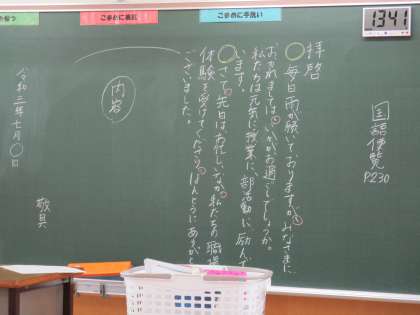 こまめに換気
こまめに手洗い
1341
国語便覧
P230
拝啓
毎日雨が続いておりますが、みなさまに
おかれましては、いかがお過ごしでしょうか。
私たちは元気に授業に、部活動に励んで
います。
さて、先日はお忙しいなか、私たちの職場
体験を受けてくださり、ほんとうにありがと
ございました。
内容
敬具
令和三年七月〇日